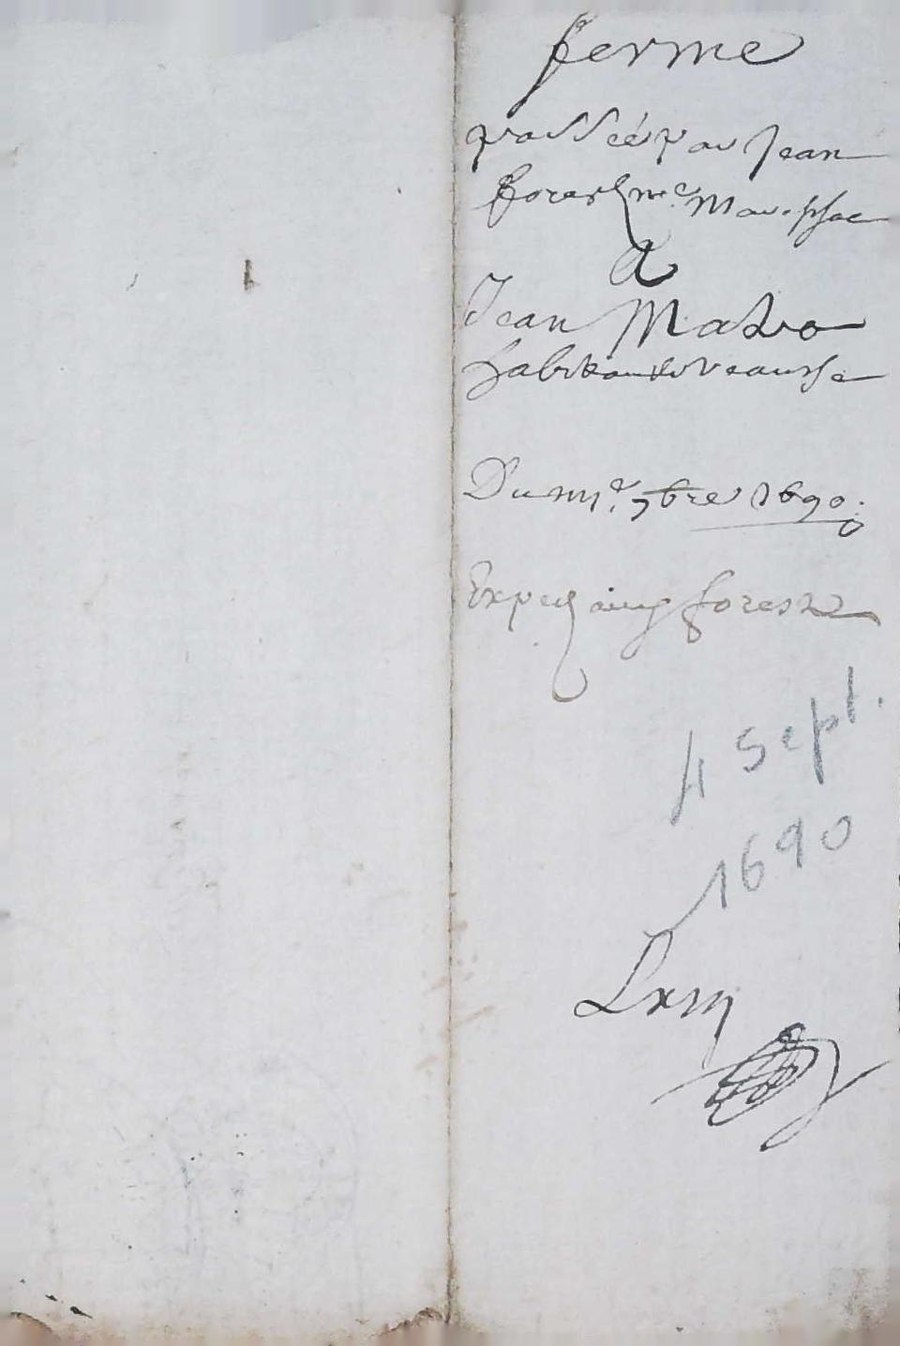 ferme
passée par Jean
forest me. Mareschac
A
Jean Mado
habitant
Du iiije. 7bre 1690.
Exped forest
4 Sept.
1690